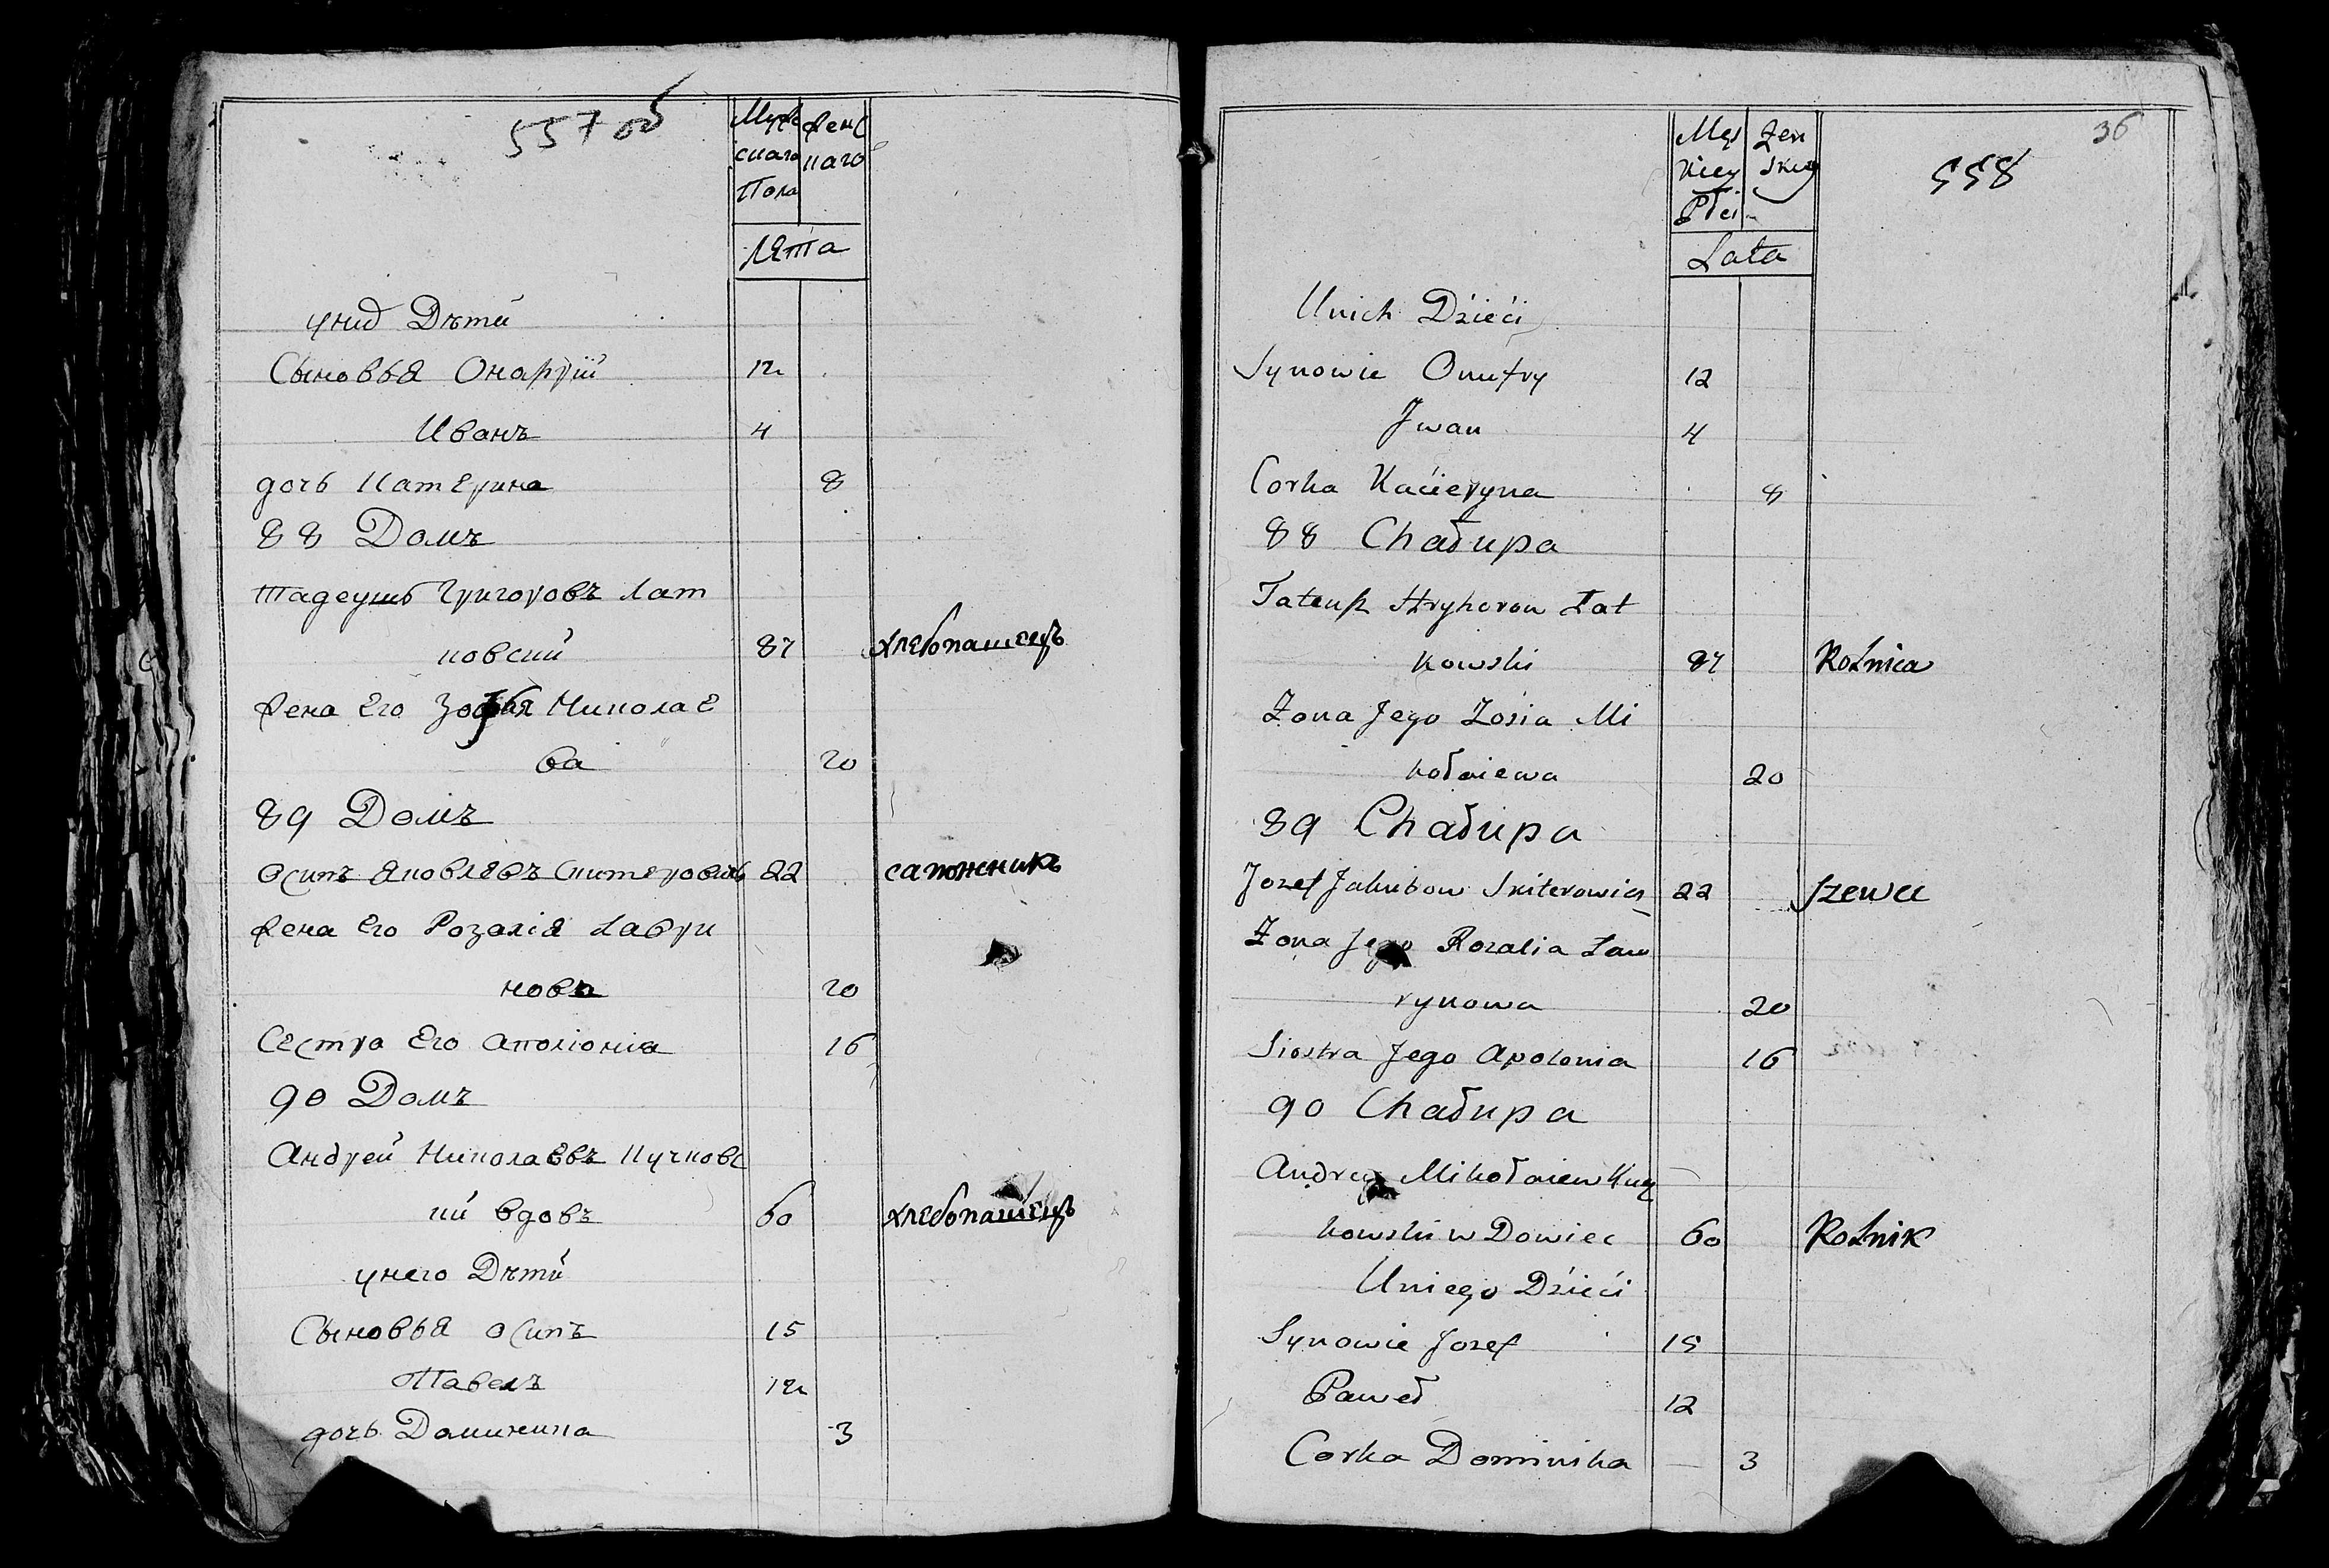 557 об
Муж Женс
скаго каго
Пола
Лѣта
у них Дѣти
Сыновья Онаѳрій 12
Иванъ 4
дочь Катерина 8
88 Домъ
Тадеушъ Григоровъ Лат
ковский 87 хлебопашецъ
Жена Его Зофья Николае
ва 20
89 Домъ
Осипъ Яковлевъ Скитеровичъ 22 сапожникъ
Жена Его Розалія Лаври
нова 20
Сестра Его Аполіонія 16
90 Домъ
Андрей Николаевъ Кучковс
кий вдовъ 60 хлебопашецъ
у него Дѣти
Сыновья Осипъ 15
Павелъ 12
дочь Доминика 3
36
558
Męs Żen
kiey skiey
Płci
Lata
Unich Dzieci
Synowie Onufry 12
Jwan 4
Corka Kacieryna 8
88 Chałupa
Tateusz Hryhorow Łat
kowski 87 Rolnica
Żona Jego Zosia Mi
kołaiewa 20
89 Chałupa
Jozef Jakubow Skiterowicz 22 szewc
Żona Jego Rozalia Ław
rynowa 20
Siostra Jego Apolonia 16
90 Chałupa
Andrey Mikołaiew Kucz
kowski wDowiec 60 Rolnik
Uniego Dzieci
Synowie Jozef 15
Paweł 12
Corka Dominika 3